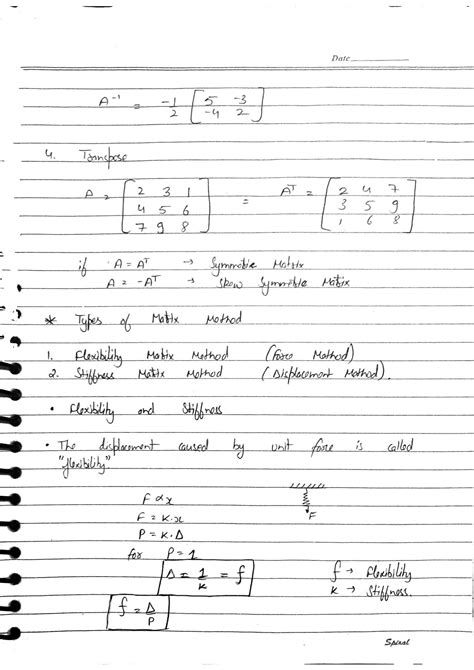 Date
A⁻¹ = -1/2 [5 -3; -4 2]
4. Transpose
A = [2 3 1; 4 5 6; 7 9 8] = Aᵀ = [2 4 7; 3 5 9; 1 6 8]
if A = Aᵀ → Symmetric Matrix
A = -Aᵀ → Skew Symmetric Matrix
* Types of Matrix Method
1. Flexibility Matrix Method (Force Method)
2. Stiffness Matrix Method (Displacement Method).
• Flexibility and Stiffness
• The displacement caused by unit force is called
"flexibility"
F ∝ x
F = K.x
F
P = K.Δ
for P = 1
Δ = 1/K = f
f → Flexibility
K → Stiffness.
f = Δ/P
Spiral